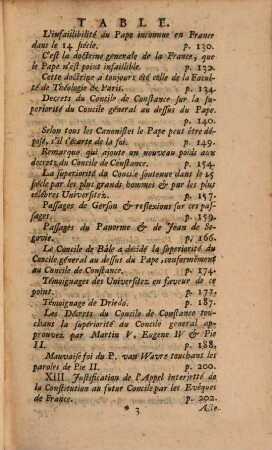 TABLE.
L'infaillibilité du Pape inconnue en France
dans le 14 siécle. p. 130.
C'est la doctrine generale de la France, que
le Pape n'est point infaillible. p. 130.
Cette doctrine a toujours été celle de la Facul-
té de Théologie de Paris. p. 134.
Decrets du Concile de Constance sur la su-
periorité du Concile général au dessus du Pape.
p. 140.
Selon tous les Canonistes le Pape peut être dé-
posé, s'il s'écarte de la foi. p. 149.
Remarque qui ajoute un nouveau poids aux
decrets du Concile de Constance. p. 154.
La superiorité du Concile soutenue dans le 15
siécle par les plus grands hommes & par les plus
célébres Universitez. p. 157.
Passages de Gerson & reflexions sur ces pas-
sages. p. 159.
Passages du Panorme & de Jean de Se-
govie. p. 166.
Le Concile de Bâle a décidé la superiorité du
Concile général au dessus du Pape, conformément
au Concile de Constance. p. 174.
Témoignages des Universitez en faveur de ce
point. p. 177.
Témoignage de Driedo. p. 187.
Les Décrets du Concile de Constance tou-
chant la superiorité du Concile general ap-
prouvez par Martin V. Eugene IV & Pie
II. p. 188.
Mauvaise foi du P. van Wavre touchant les
paroles de Pie II. p. 200.
XIII Justification de l'Appel interjetté de
la Constitution au futur Concile par les Evêques
de France. p. 202.
* 3 Acte